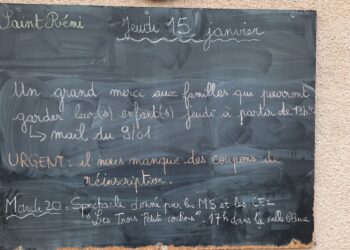 Saint Rémi
Jeudi 15 janvier
Un grand merci aux familles qui pourront
garder leur(s) enfant(s) jeudi à partir de 13h30
↳ mail du 9/01
URGENT : il nous manque des coupons de
réinscription.
Mardi 20 : Spectacle donné par les MS et les CE2
"Les Trois Petits cochons" 17h dans la salle Bleue